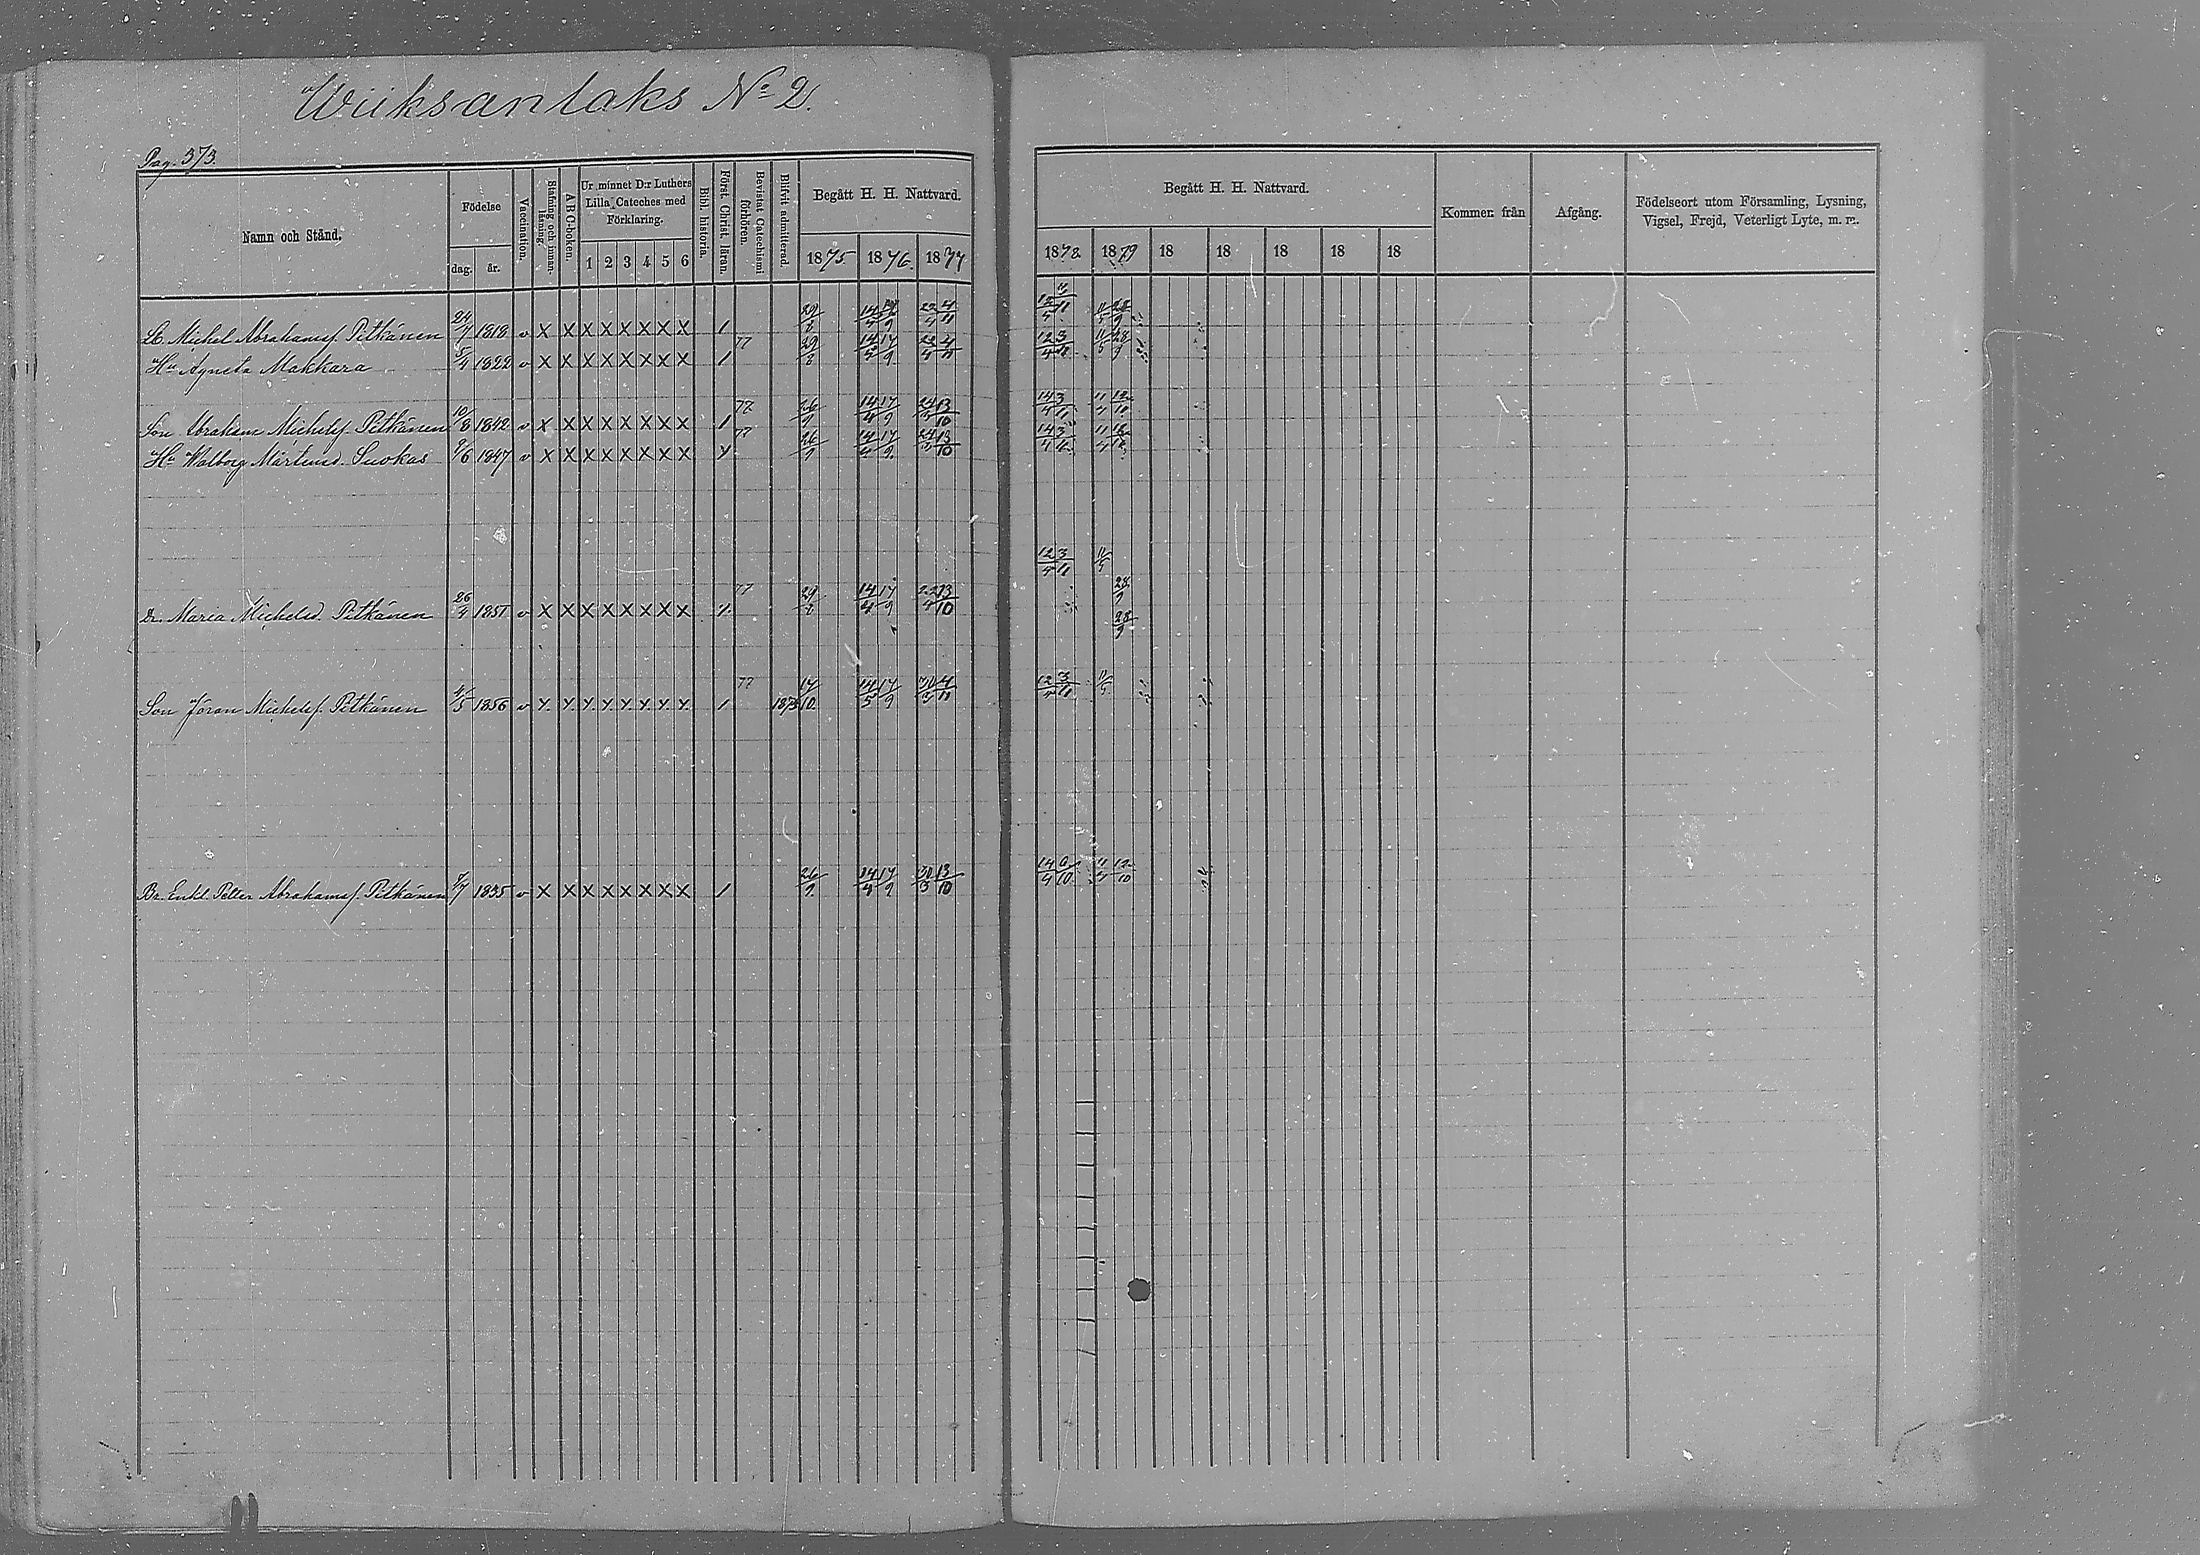 Wiiksanlaks No 2.
Pag. 373.
Namn och Stånd.
Födelse
dag. år.
Vaccination.
Stafning och innanläsning.
A B C-boken.
Ur minnet D:r Luthers Lilla Cateches med Förklaring.
1 2 3 4 5 6
Bibl. historia.
Först. Christ. läran.
Bevistat Catechismi förhören.
Blifvit admitterad.
Begått H. H. Nattvard.
1875 1876. 1877
Begått H. H. Nattvard.
1878. 1879 18 18 18 18 18
Kommen från
Afgång.
Födelseort utom Församling, Lysning, Vigsel, Frejd, Veterligt Lyte, m. m.
Michel Abrahamsf. Pitkänen 24/7 1818 v X X X X X X X X / 29/8 14/4 17/9 22/4 4/11 12/4 3/11 11/5 28/9
Hu Agneta Makkara 5/4 1822 v X X X X X X X X / 77 29/8 14/4 17/9 22/4 4/11 12/4 3/11 11/5 28/9
Son Abraham Michelsf. Pitkänen 10/8 1842 v X X X X X X X X / 77 26/9 14/4 17/9 13/10 14/4 3/11 11/4 12/10
Hu Walborg Mårtensd. Suokas 9/6 1847 v X X X X X X X X 77 26/9 14/4 17/9 13/10 14/4 3/11 11/4 12/10
12/4 3/11 11/5
Dr. Maria Michelsd. Pitkänen 26/4 1851 v X X X X X X X X 77 29/8 14/4 17/9 22/4 13/10 28/9
28/9
Son Jöran Michelsf. Pitkänen 4/5 1856 v X X X X X X X X / 77 1873 17/10 14/5 17/9 30/3 4/11 12/4 3/11 11/5
Br. Enkl. Petter Abrahamsf. Pitkänen 7/7 1835 v X X X X X X X X / 26/9 14/4 17/9 30/3 13/10 14/4 6/10 11/4 12/10